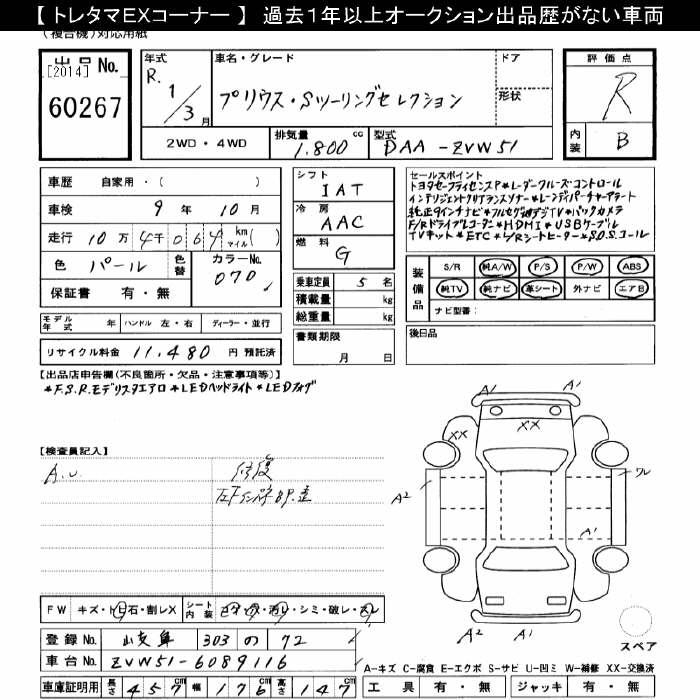 【 トレタマEXコーナー 】 過去1年以上オークション出品歴がない車両
(複合機)対応用紙
出品 No.
[2014]
60267
年式
R. 1/3月
車名・グレード
プリウス・Sツーリングセレクション
ドア
形状
評価点
R
内装 B
2WD・4WD
排気量 1.800 cc
型式 DAA-ZVW51
車歴 自家用・( )
車検 9年10月
走行 10万4千064km マイル( )
色 パール
色替
カラーNo. 070
保証書 有・無
シフト IAT
冷房 AAC
燃料 G
乗車定員 5名
積載量 kg
総重量 kg
書類期限
月 日
セールスポイント
トヨタセーフティセンスP*レーダークルーズコントロール
インテリジェントクリアランスソナー*レーンディパーチャーアラート
純正9インチナビ*フルセグ地デジTV*バックカメラ
F/Rドライブレコーダー*HDMI*USBケーブル
TVキット*ETC*L/Rシートヒーター*S.O.S.コール
装備品
S/R 純A/W P/S P/W ABS
純TV 純ナビ 革シート 外ナビ エアB
ナビ型番:
モデル年式 年
ハンドル 左・右
ディーラー・並行
後日品
リサイクル料金 11,480 円 預託済
【出品店申告欄(不良箇所・欠品・注意事項等)】
*F.S.R.モデリスタエアロ*LEDヘッドライト*LEDフォグ
【検査員記入】
修復
A1
A1
XX
XX
A2
ワレ
A1
A2
A1
スペア
FW キズ・トビ石・割レX
シート内装
シミ・破レ
登録No. 303 の 72
車台No. ZVW51-6089116
車庫証明用 長さ 457cm 幅 176cm 高さ 147cm
A―キズ C―腐食 E―エクボ S―サビ U―凹ミ W―補修 XX―交換済
工具 有・無 ジャッキ 有・無